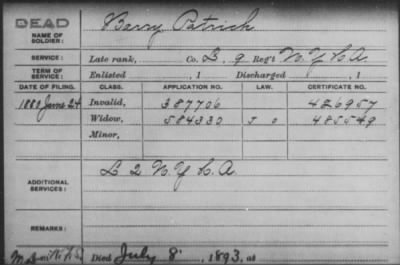 DEAD
NAME OF SOLDIER: Barry Patrick
SERVICE: Late rank, Co. L. 9 Reg't N.Y.H.A.
TERM OF SERVICE: Enlisted , 1 Discharged , 1
DATE OF FILING. CLASS. APPLICATION NO. LAW. CERTIFICATE NO.
1880 June 24 Invalid, 387706 426957
Widow, 584330 485549
Minor,
ADDITIONAL SERVICES: L 2 N.Y.H.A.
REMARKS:
Died July 8 , 1893, at